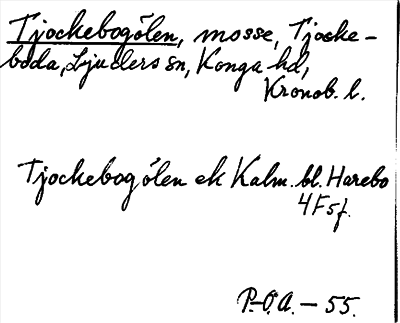 Tjockebogölen, mosse, Tjocke-
boda, Ljuders sn, Konga hd,
Kronob. l.
Tjockebogölen ek Kalm. bl. Harebo
4F5f.
P.-O.A. - 55.